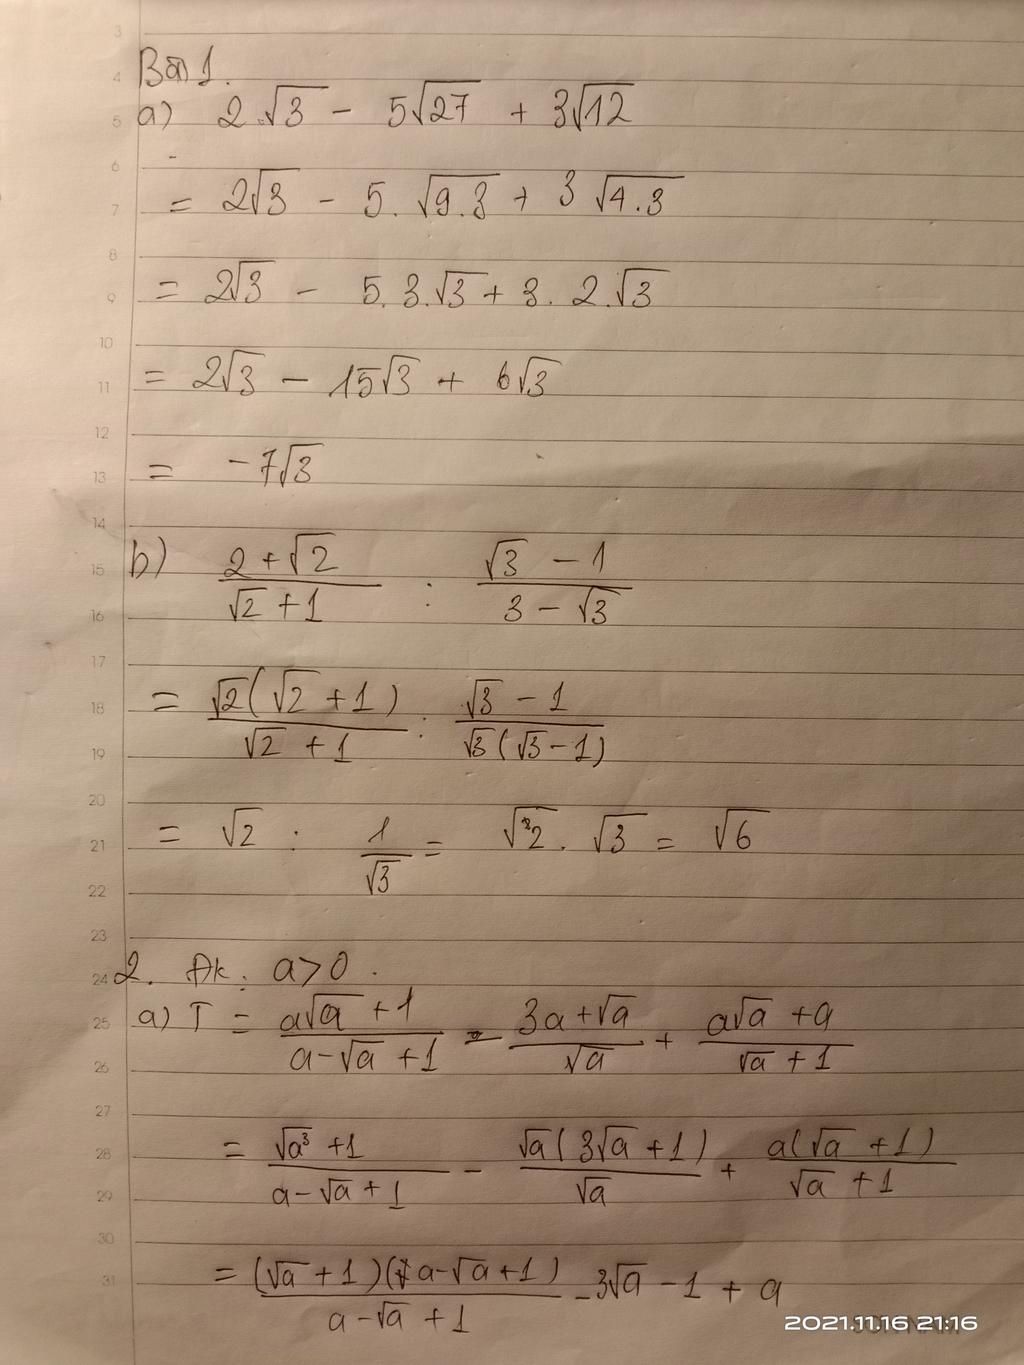 3
4 Bài 1.
5 a) 2.√3 - 5√27 + 3√12
6
7 = 2√3 - 5.√9.3 + 3√4.3
8
9 = 2√3 - 5.3.√3 + 3.2.√3
10
11 = 2√3 - 15√3 + 6√3
12
13 = -7√3
14
15 b) (2+√2)/(√2+1) : (√3-1)/(3-√3)
16
17
18 = √2(√2+1)/(√2+1) : (√3-1)/(√3(√3-1))
19
20
21 = √2 : 1/√3 = √2.√3 = √6
22
23
24 2. Đk: a>0.
25 a) T = (a√a+1)/(a-√a+1) - (3a+√a)/√a + (a√a+a)/(√a+1)
26
27
28 = (√a³+1)/(a-√a+1) - √a(3√a+1)/√a + a(√a+1)/(√a+1)
29
30
31 = (√a+1)(a-√a+1)/(a-√a+1) - 3√a - 1 + a
2021.11.16 21:16